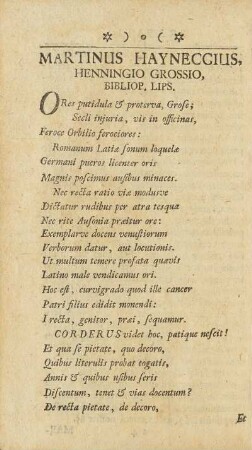 ✲ ) o ( ✲
MARTINUS HAYNECCIUS,
HENNINGIO GROSSIO,
BIBLIOP. LIPS.
ORes putidula & proterva, Grose;
Secli injuria, vis in officinas,
Feroce Orbilio ferociores:
Romanum Latiæ sonum loquelæ
Germani pueros licenter oris
Magnis poscimus ausibus minaces.
Nec recta ratio viæ modusve
Dictatur rudibus per atra tesqua
Nec rite Ausonia præitur ore:
Exemplarve docens venustiorum
Verborum datur, aut locutionis.
Ut multum temere profata quavis
Latino male vendicamus ori.
Hoc est, curvigrado quod ille cancer
Patri filius edidit monendi:
I recta, genitor, præi, sequamur.
CORDERUS videt hoc, patique nescit!
Et qua se pietate, quo decoro,
Quibus literulis probat togatis,
Annis & quibus usibus seris
Discentum, tenet & vias docentum?
De recta pietate, de decoro,
Et